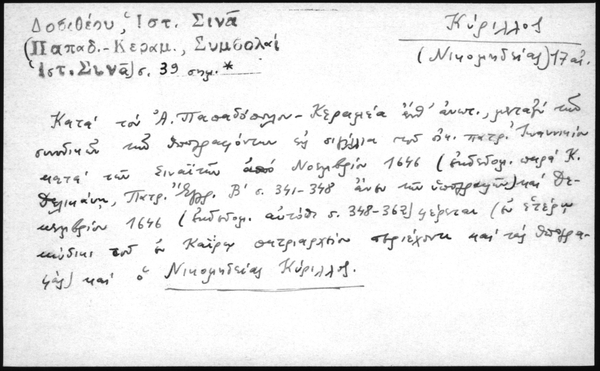 Δοσιθέου, Ἱστ. Σινᾶ
(Παπαδ.-Κεραμ., Συμβολαὶ
Ἱστ. Σινᾶ) σ. 39 σημ. *
Κύριλλος
(Νικομηδείας) 17 αἰ.
Κατὰ τὸν Ἀ. Παπαδόπουλον-Κεραμέα ἔνθ' ἀνωτ., μεταξὺ τῶν
συνοδικῶν τῶν ὑπογραψάντων εἰς σιγίλλια τοῦ οἰκ. πατρ. Ἰωαννικίου
κατὰ τῶν Σιναϊτῶν Νοεμβρίου 1646 (ἐκδεδομ. παρὰ Κ.
Δελικάνη, Πατρ. Ἔγγρ. Β' σ. 341-348 ἄνευ τῶν ὑπογραφῶν) καὶ Δε-
κεμβρίου 1646 (ἐκδεδομ. αὐτόθι σ. 348-362) φέρεται (ἐν ἑτέρῳ
κώδικι τοῦ ἐν Καΐρῳ πατριαρχείου περιέχοντι καὶ τὰς ὑπογρα-
φὰς) καὶ ὁ Νικομηδείας Κύριλλος.